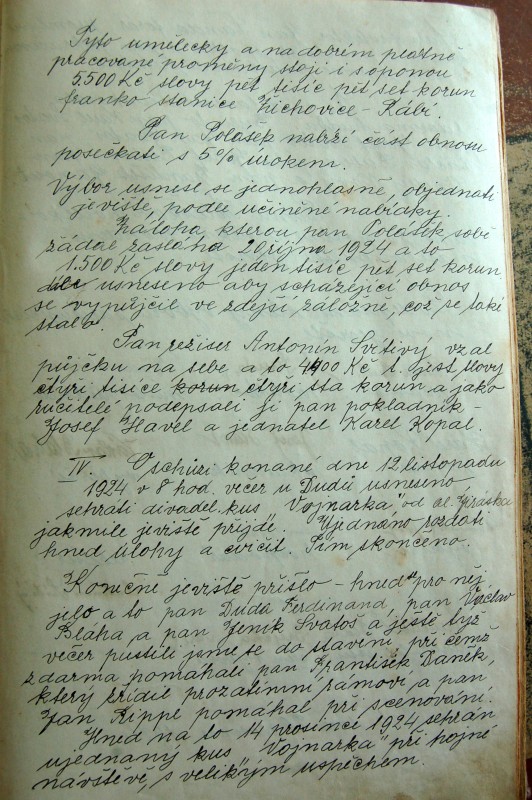 Tyto umělecky a na dobrém plátně
pracované proměny stojí i s oponou
5.500 Kč slovy pět tisíc pět set korun
franko stanice Žichovice - Rábí.
Pan Polášek nabízí část obnosu
posečkati s 5% úrokem.
Výbor usnesl se jednohlasně, objednati
jeviště, podle učiněné nabídky.
Záloha, kterou pan Polášek sobě
žádal zaslána 20 října 1924 a to
1.500 Kč slovy jeden tisíc pět set korun
usneseno aby scházející obnos
se vypůjčil ve zdejší záložně, což se také
stalo.
Pan režiser Antonín Svítivý vzal
půjčku na sebe a to 4400 Kč t. jest slovy
čtyři tisíce korun čtyři sta korun a jako
ručitelé podepsali ji pan pokladník -
Josef Havel a jednatel Karel Kopal.
IV. O schůzi konané dne 12 listopadu
1924 v 8 hod. večer u Dudů usneseno
sehráti divadel. kus "Vojnarka" od al. Jiráska
jakmile jeviště přijde. Ujednáno rozdati
hned úlohy a cvičit. Tím skončeno.
Konečně jeviště přišlo - hned pro něj
jelo a to pan Duda Ferdinand, pan Václav
Bláha a pan Jeník Svatoš a ještě týž
večer pustili jsme se do stavění, při čemž
zdarma pomáhali pan František Daněk,
který zřídil prozatimní rámoví a pan
Jan Rippl pomáhal při scenování.
Hned na to 14 prosince 1924 sehrán
ujednaný kus "Vojnarka" při hojné
návštěvě, s velikým uspěchem.